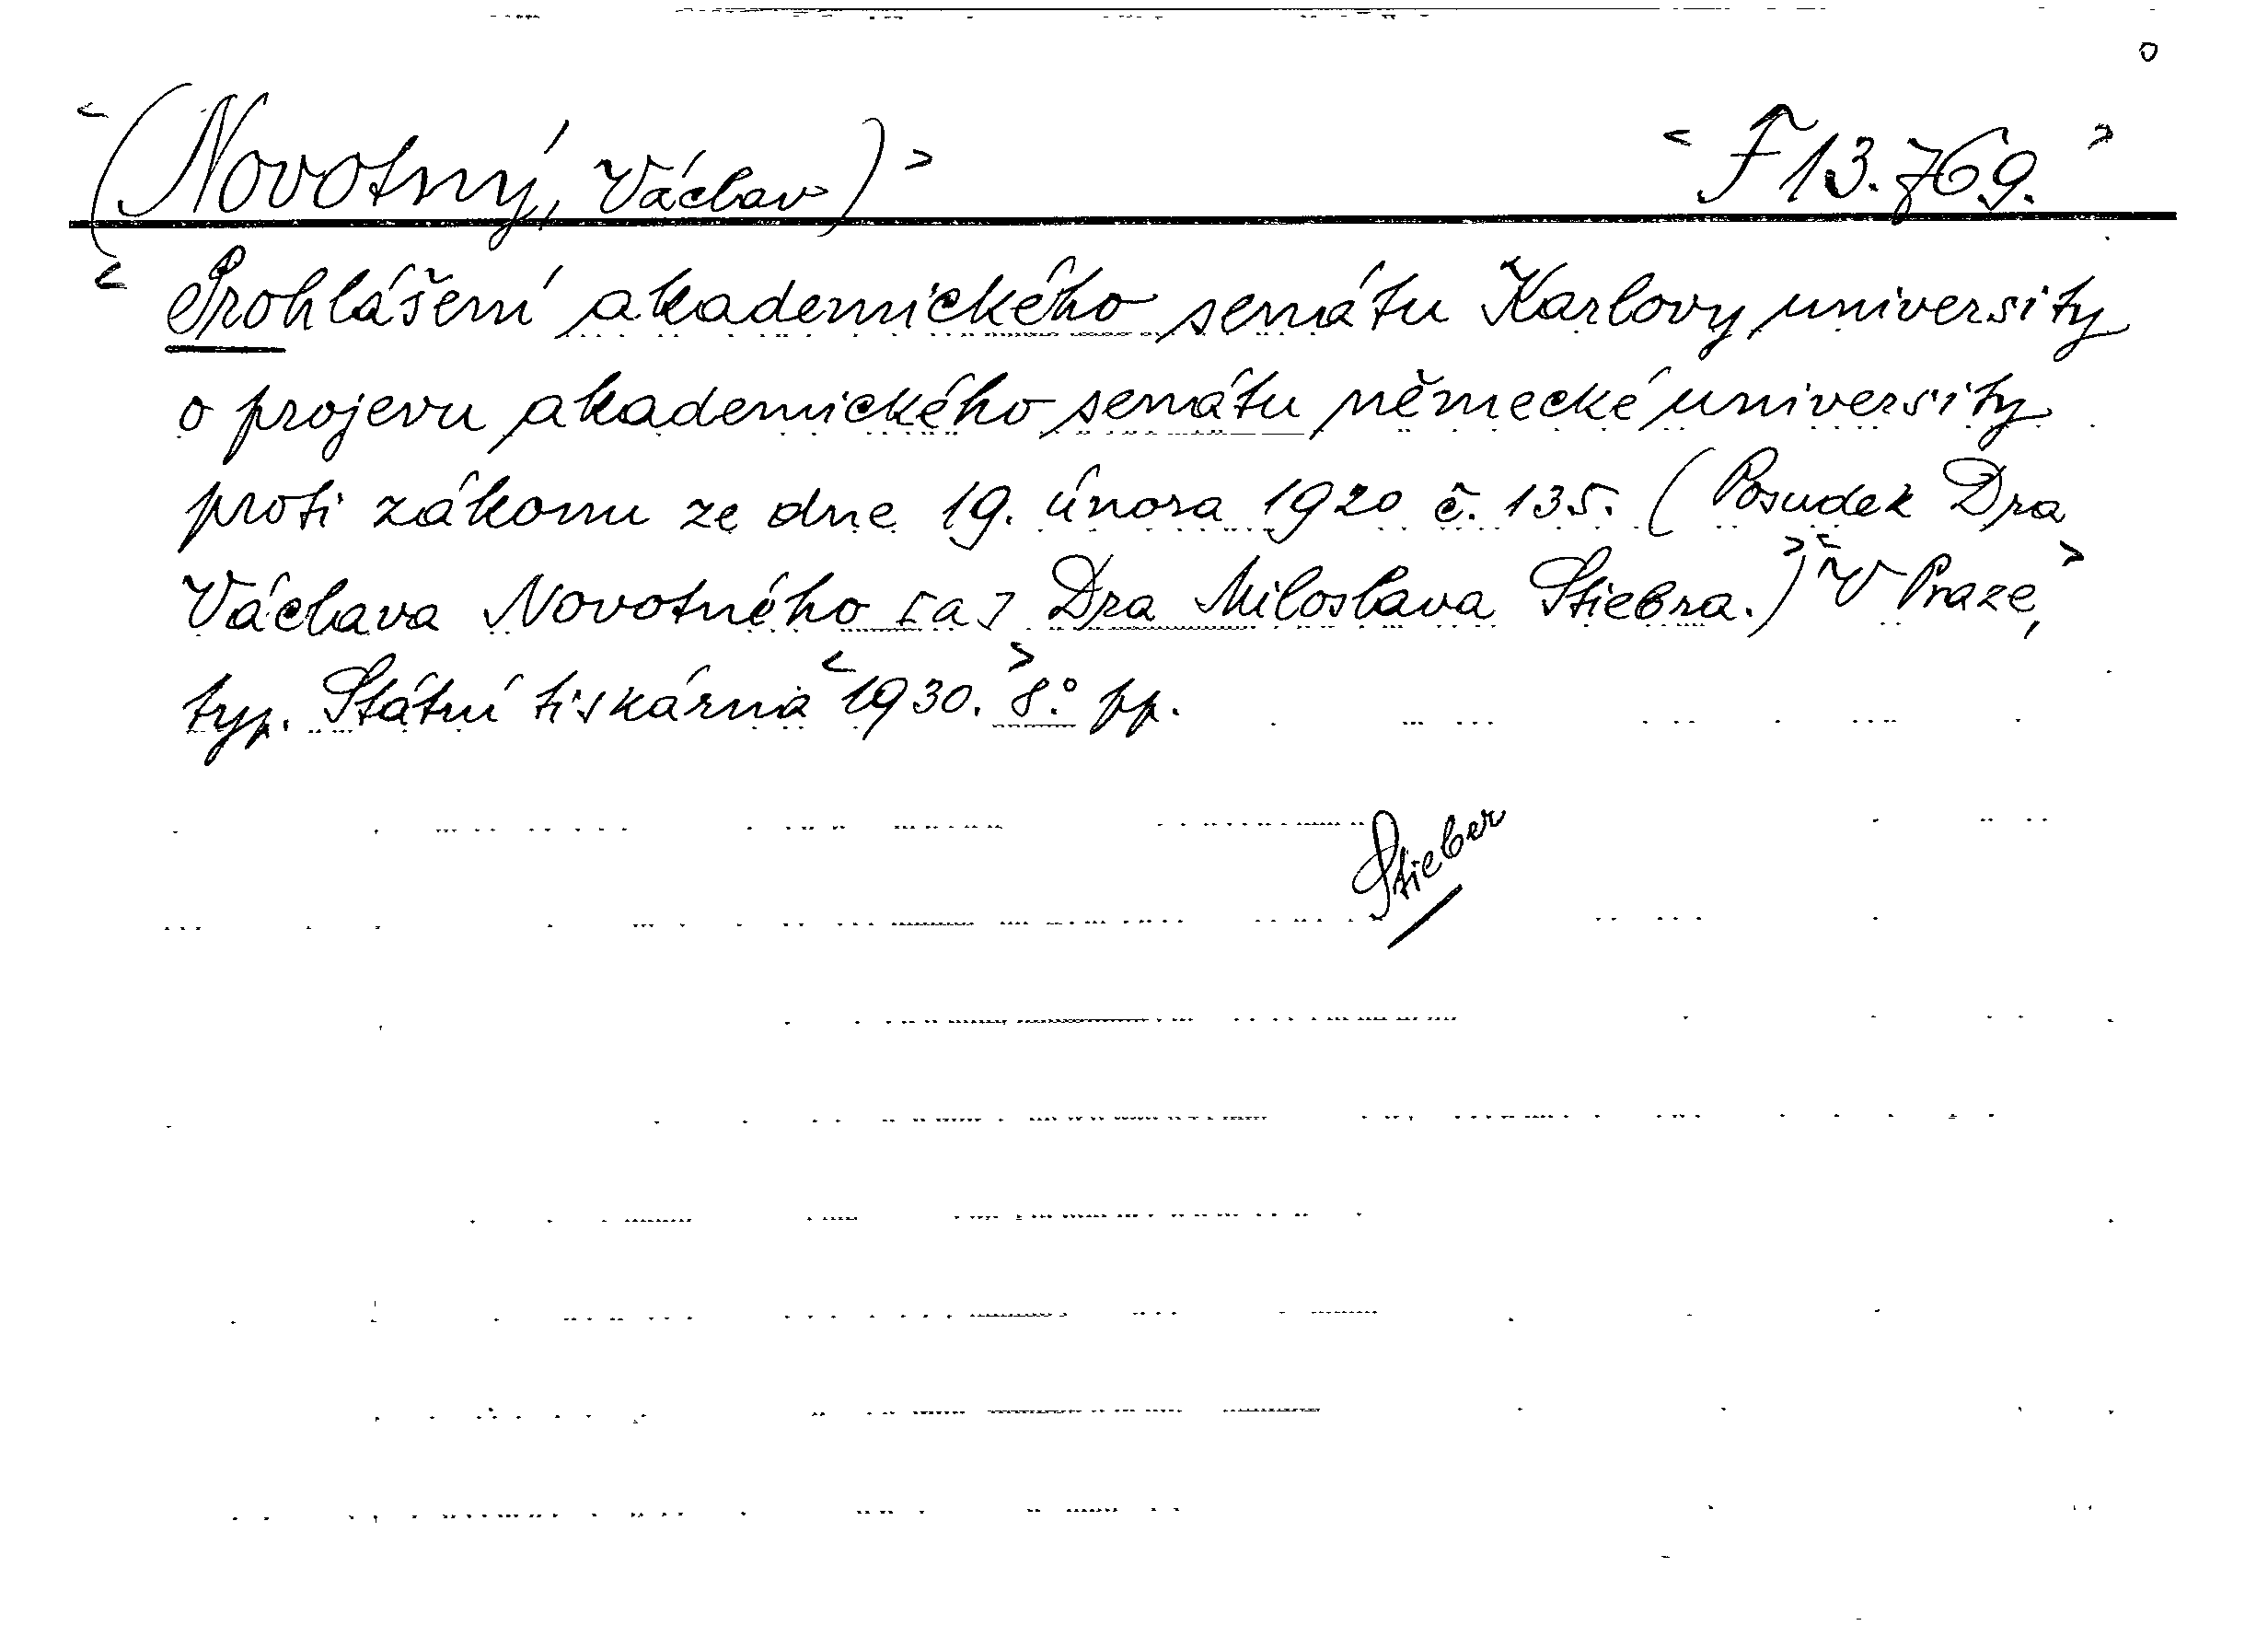 <(Novotný, Václav)> <F 13.769.>
<Prohlášení akademického senátu Karlovy university
o projevu akademického senátu německé university
proti zákonu ze dne 19. února 1920 č. 135. (Posudek Dra
Václava Novotného [a] Dra Miloslava Stiebra.)> <V Praze,>
typ. Státní tiskárna <1930.> 8.° pp.
Stieber